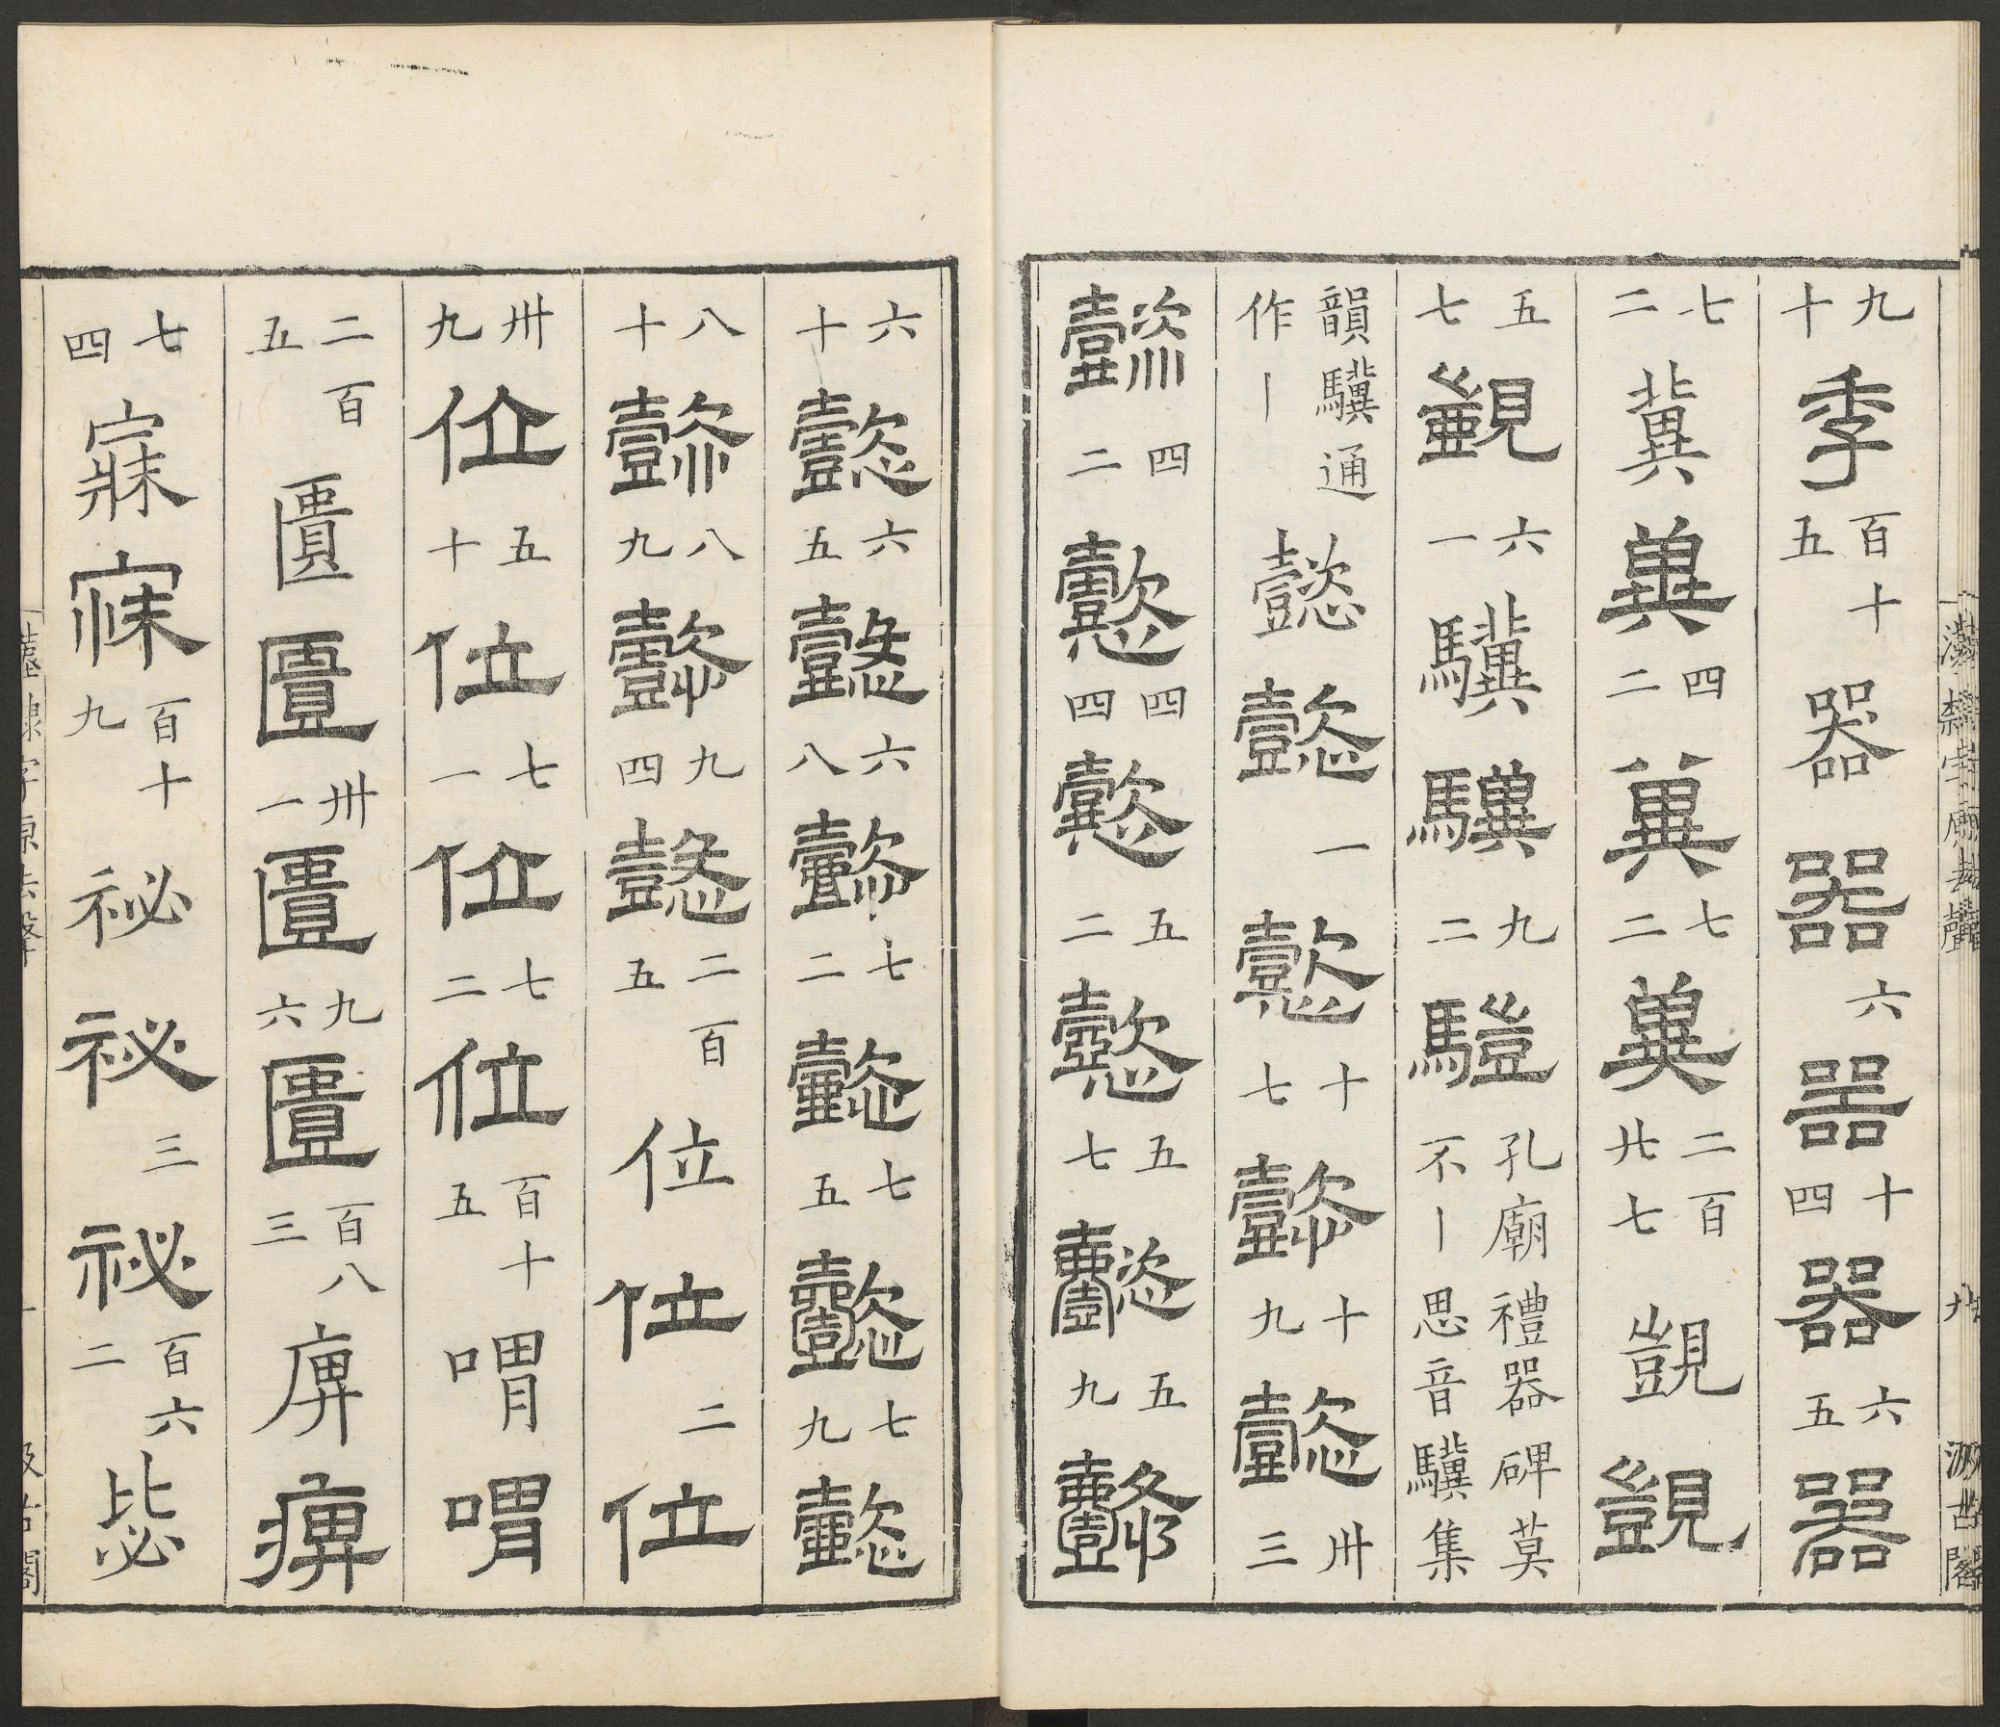 九十季百十五器器六器十四器六五器
七二兾兾四二兾七二兾二百廿七覬覬
五七覬六一驥驥九二驥孔廟禮器碑莫不丨思音驥集
韻驥通作丨懿懿一懿十七懿十九懿卅三
懿四二懿四四懿五二懿五七懿五九懿
六十懿六五懿六八懿七二懿七五懿七九懿
八十懿八九懿九四懿二百五位位二位
卅九位五十位七一位七二位百十五喟喟
二百五匱匱卅一匱九六匱百八三痹痹
七四寐寐百十九祕祕三祕百六二毖
漢隸字原去聲
汲古閣